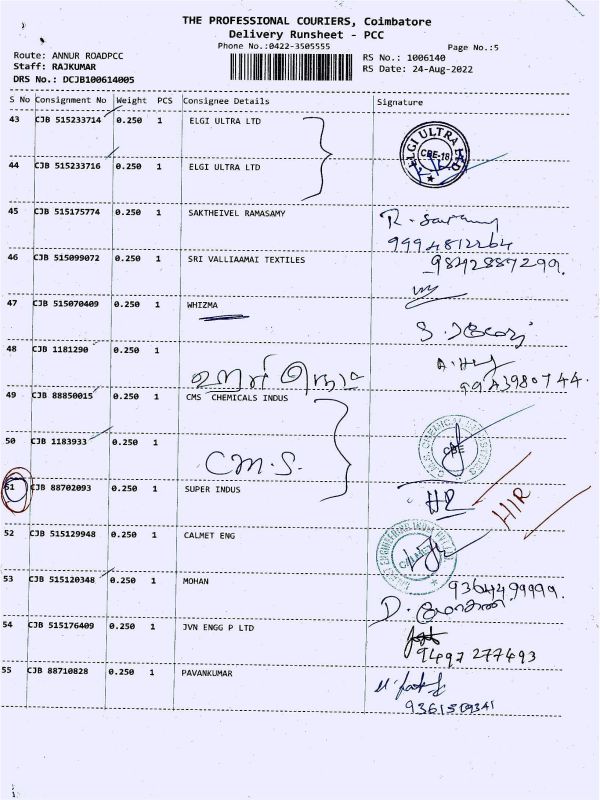 THE PROFESSIONAL COURIERS, Coimbatore
Delivery Runsheet - PCC
Phone No.:0422-3505555
Page No.:5
Route: ANNUR ROADPCC
RS No.: 1006140
Staff: RAJKUMAR
RS Date: 24-Aug-2022
DRS No.: DCJB100614005
S No Consignment No Weight PCS Consignee Details Signature
43 CJB 515233714 0.250 1 ELGI ULTRA LTD
ELGI ULTRA LTD
CBE-18
44 CJB 515233716 0.250 1 ELGI ULTRA LTD
45 CJB 515175774 0.250 1 SAKTHEIVEL RAMASAMY
9994812264
46 CJB 515099072 0.250 1 SRI VALLIAAMAI TEXTILES
9842887299.
47 CJB 515070409 0.250 1 WHIZMA
48 CJB 1181290 0.250 1
49 CJB 88850015 0.250 1 CMS CHEMICALS INDUS
CBE
50 CJB 1183933 0.250 1
C.M.S.
51 CJB 88702093 0.250 1 SUPER INDUS
HR
H/R
52 CJB 515129948 0.250 1 CALMET ENG
53 CJB 515120348 0.250 1 MOHAN
9364499999.
54 CJB 515176409 0.250 1 JVN ENGG P LTD
9497 277493
55 CJB 88710828 0.250 1 PAVANKUMAR